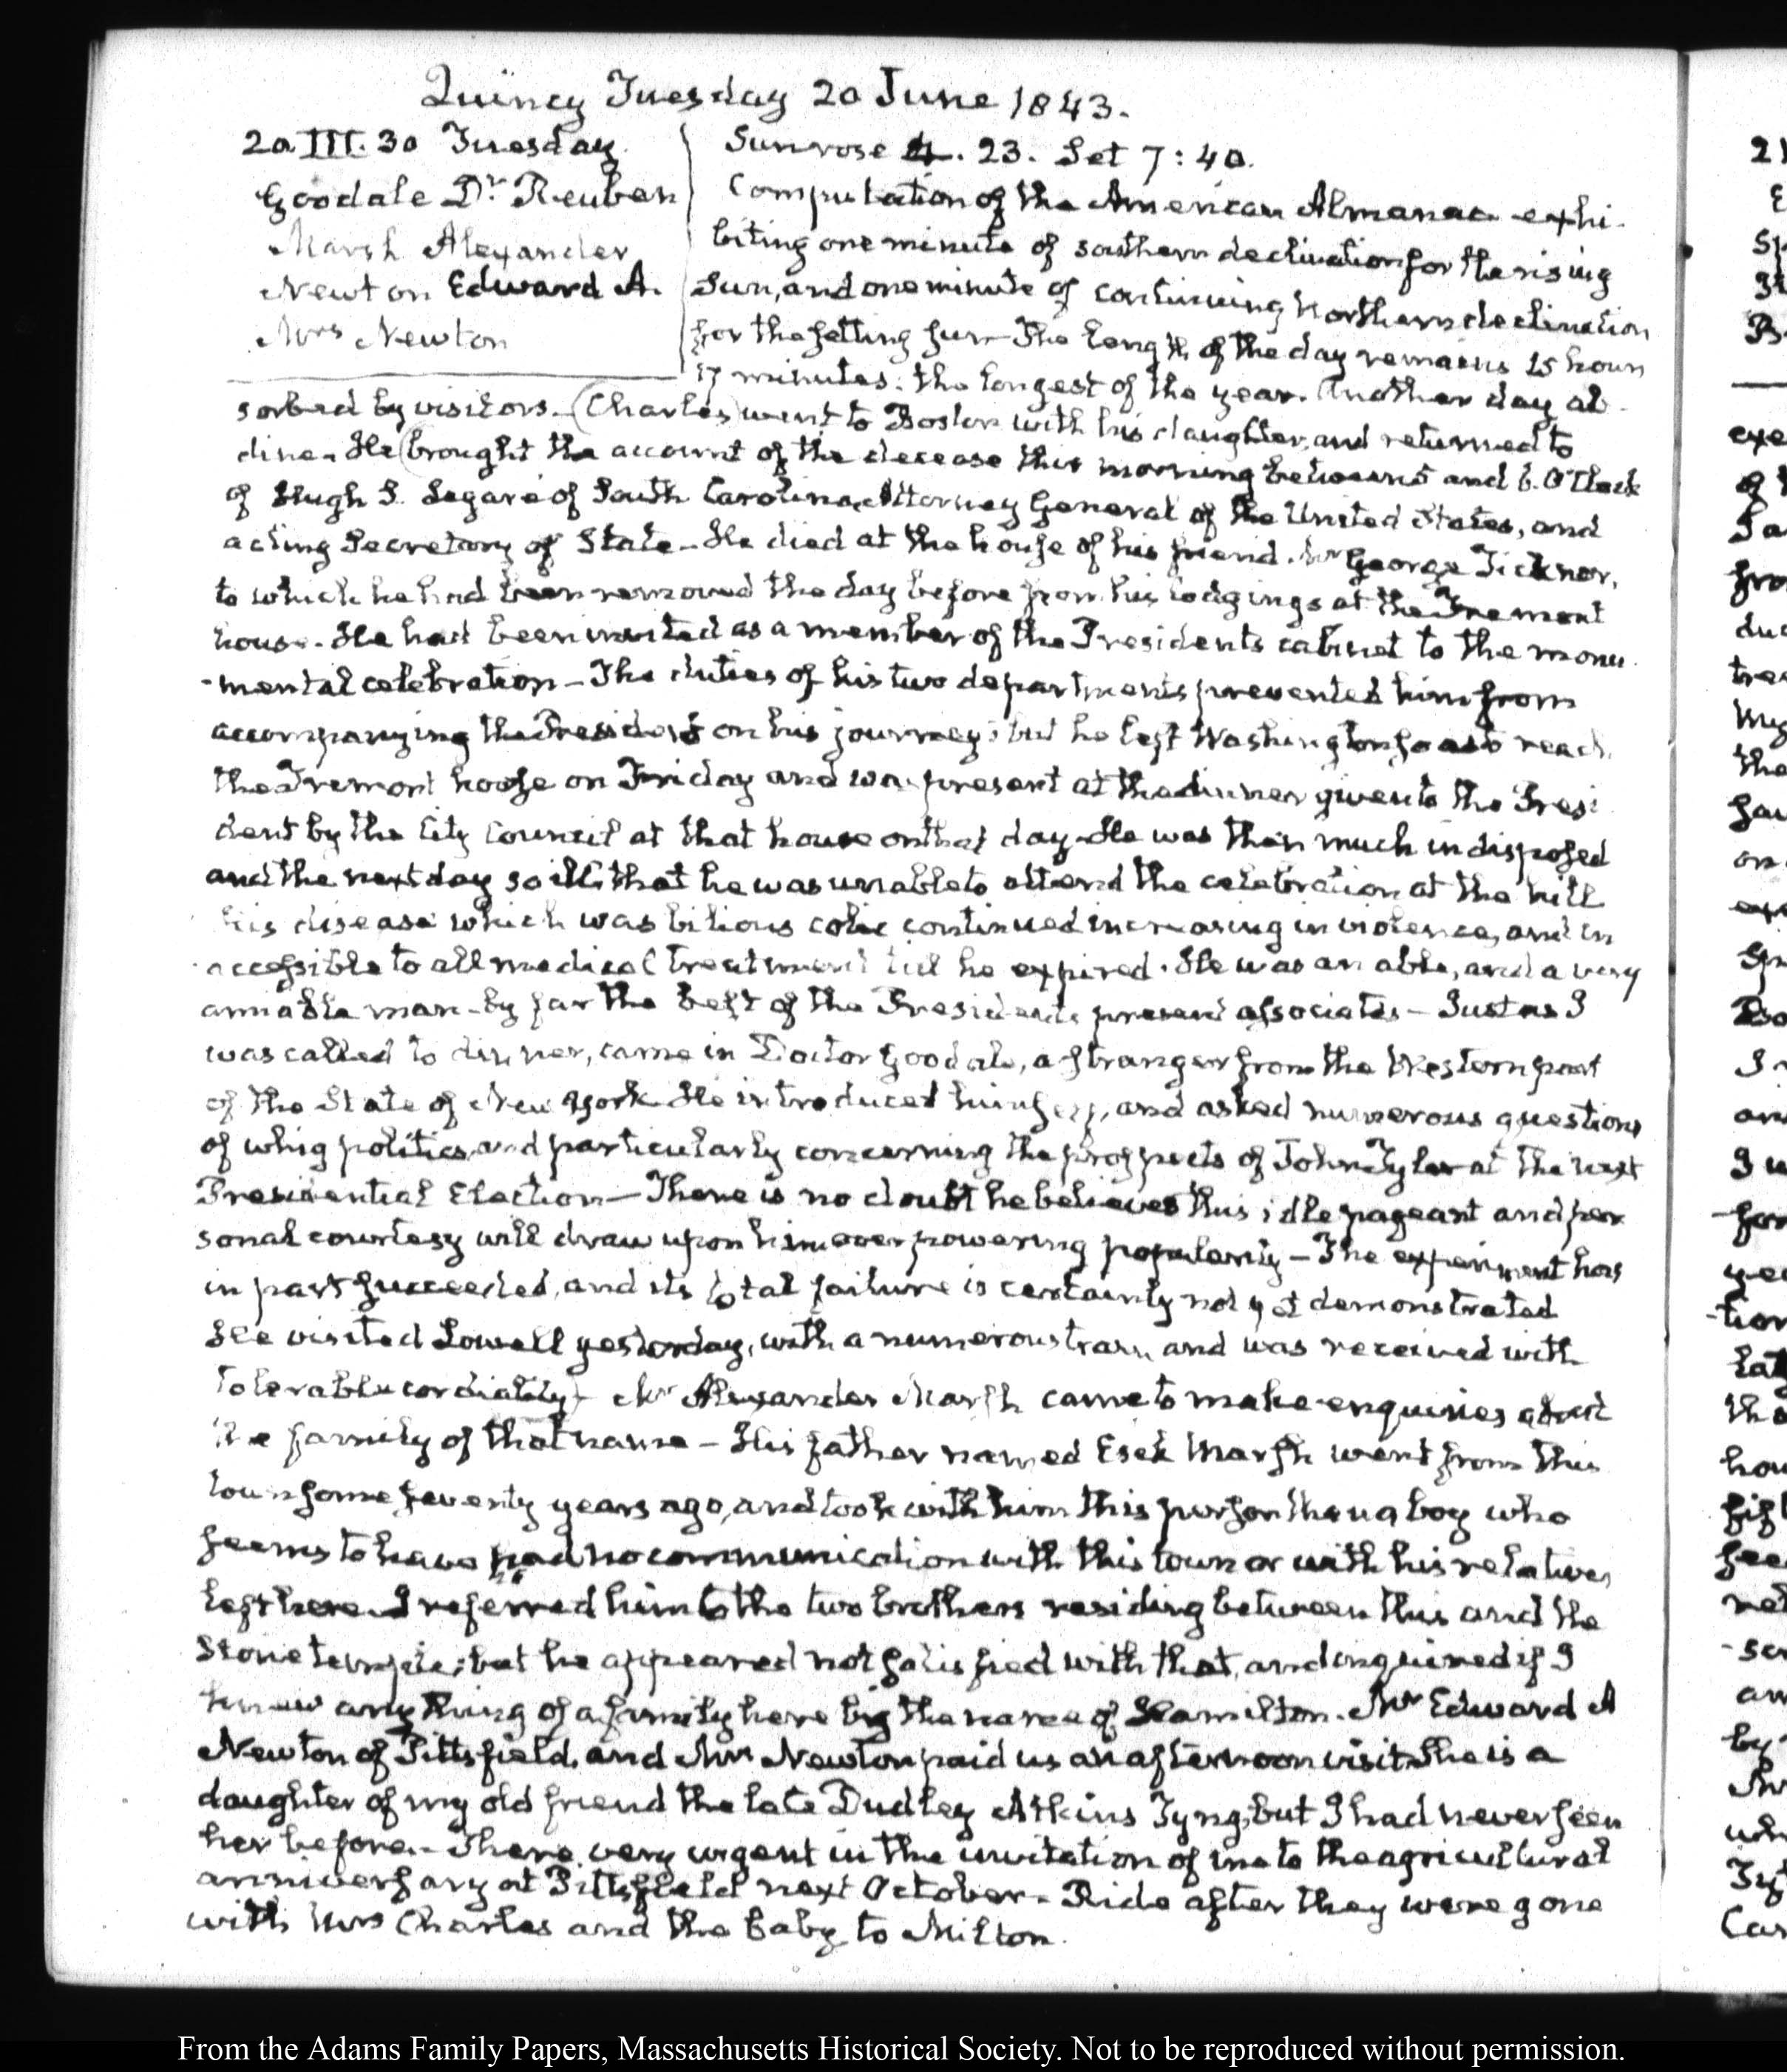 Quincy Tuesday 20 June 1843.
20. III. 30 Tuesday.
Goodale Dr. Reuben
Marsh Alexander
Newton Edward A.
Mrs Newton
Sun rose 4. 23. Set 7: 40.
Computation of the American Almanac exhi-
biting one minute of southern declination for the rising
Sun, and one minute of continuing Northern declination
for the setting sun - The length of the day remains 15 hours
17 minutes. the longest of the year. Another day ab-
sorbed by visitors. (Charles) went to Boston with his daughter, and returned to
dine. He (brought the account of the decease this morning between 5 and 6. O'Clock
of Hugh S. Legaré of South Carolina, Attorney General of the United States, and
acting Secretary of State - He died at the house of his friend. Mr George Ticknor,
to which he had been removed the day before from his lodgings at the Tremont
house. He had been invited as a member of the Presidents cabinet to the monu-
-mental celebration - The duties of his two departments prevented him from
accompanying the President on his journey; but he left Washington so as to reach
the Tremont house on Friday and was present at the dinner given to the Presi-
dent by the City Council at that house on that day. He was then much indisposed
and the next day so ill that he was unable to attend the celebration at the hill
his disease which was bilious colic continued increasing in violence, and in
accessible to all medical treatment till he expired. He was an able, and a very
amiable man - by far the best of the Presidents present associates - Just as I
was called to dinner, came in Doctor Goodale, a stranger from the Western part
of the State of New York. He introduced himself, and asked numerous questions
of whig politics and particularly concerning the prospects of John Tyler at the next
Presidential Election - There is no doubt he believes this idle pageant and per
sonal courtesy will draw upon him overpowering popularity - The experiment has
in part succeeded, and its total failure is certainly not yet demonstrated
He visited Lowell yesterday, with a numerous train and was received with
tolerable cordiality - Mr Alexander Marsh came to make enquiries about
the family of that name - His father named Esek Marsh went from this
town some seventy years ago, and took with him this person then a boy who
seems to have had no communication with this town or with his relatives
left here. I referred him to the two brothers residing between this and the
Stone temple; but he appeared not satisfied with that, and enquired if I
knew any thing of a family here by the name of Hamilton. Mr Edward A
Newton of Pittsfield, and Mrs Newton paid us an afternoon visit. She is a
daughter of my old friend the late Dudley Atkins Tyng, but I had never seen
her before. - They were very urgent in the invitation of me to the agricultural
anniversary at Pittsfield next October - Ride after they were gone
with Mrs Charles and the baby to Milton.
From the Adams Family Papers, Massachusetts Historical Society. Not to be reproduced without permission.